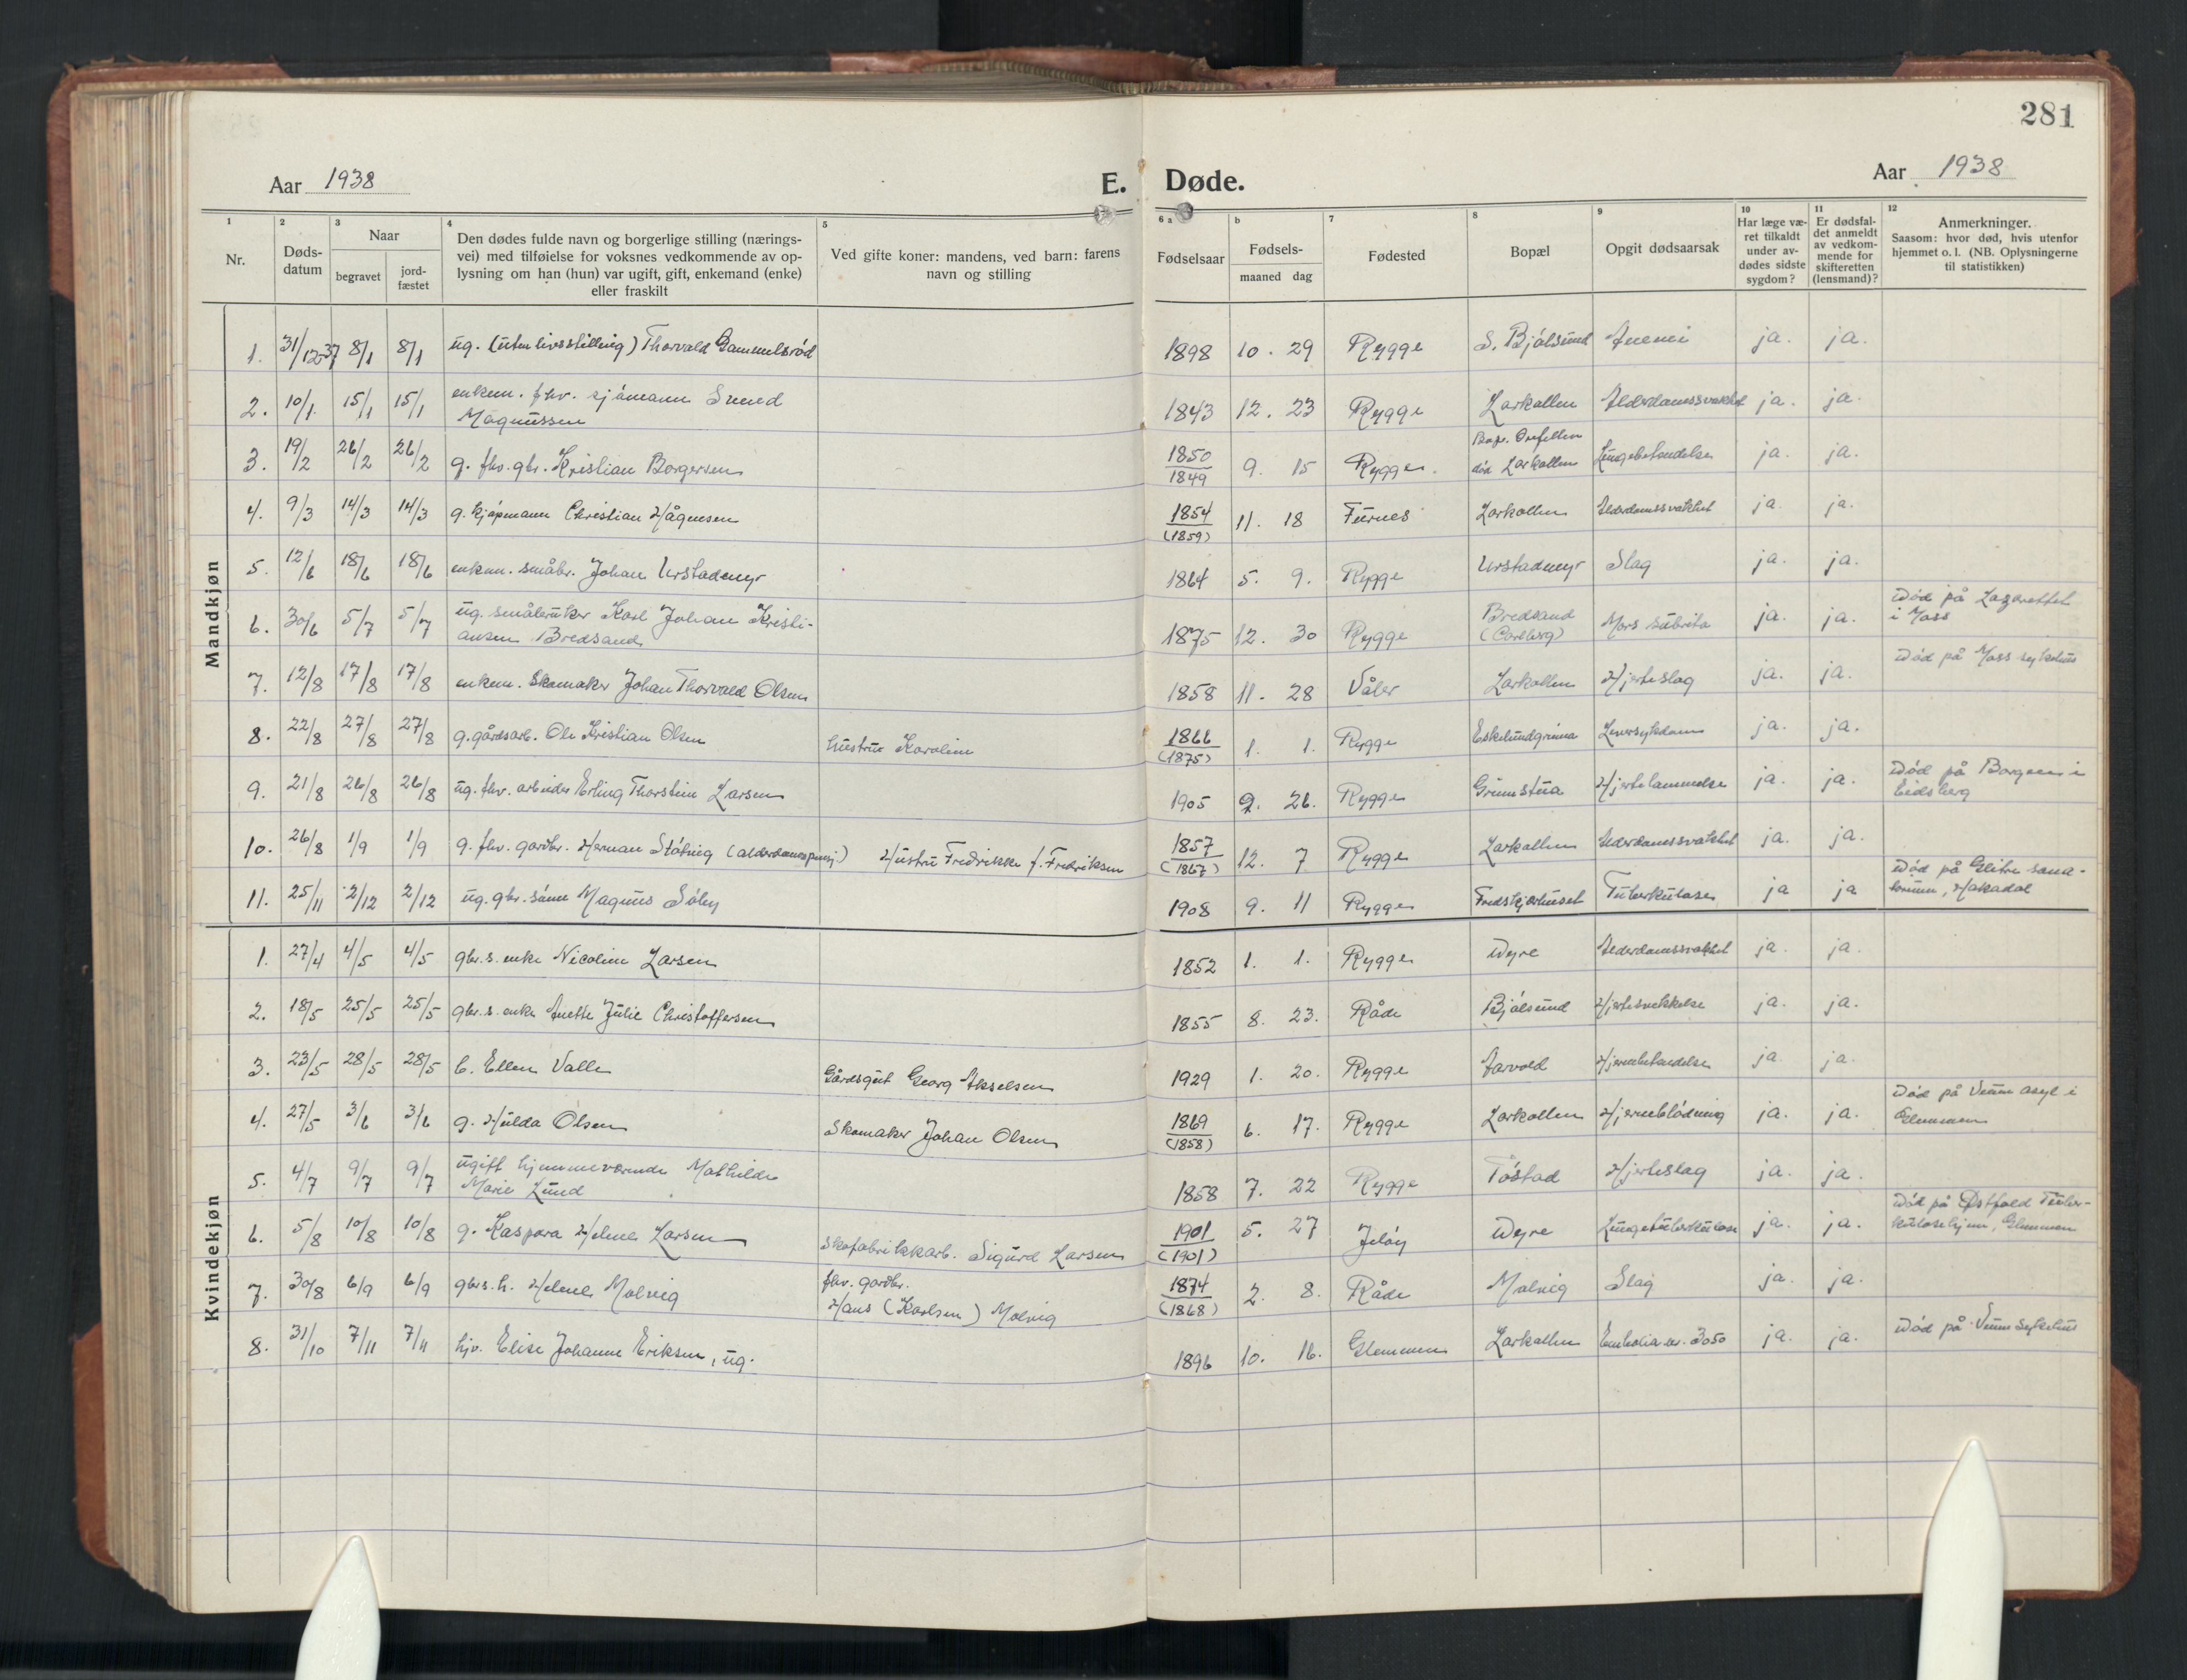 281
Aar 1938
E. Døde.
Aar 1938
1 2 3 4 5 6 a b 7 8 9 10 11 12
Nr. Døds-datum Naar begravet jord-fæstet Den dødes fulde navn og borgerlige stilling (nærings-
vei) med tilføielse for voksnes vedkommende av op-
lysning om han (hun) var ugift, gift, enkemand (enke)
eller fraskilt
Ved gifte koner: mandens, ved barn: farens
navn og stilling
Fødselsaar Fødsels- maaned dag Fødested Bopæl Opgit dødsaarsak
Har læge væ-
ret tilkaldt
under av-
dødes sidste
sygdom?
Er dødsfal-
det anmeldt
av vedkom-
mende for
skifteretten
(lensmand)?
Anmerkninger.
Saasom: hvor død, hvis utenfor
hjemmet o. l. (NB. Oplysningerne
til statistikken)
Mandkjøn
1. 31/12-37 8/1 8/1 ug. (uten livsstilling) Thorvald Gammelsrød 1898 10. 29 Rygge S. Bjølsund Anemi ja. ja.
2. 10/1 15/1 15/1 enkem. fhv. sjømann Svend
Magnussen 1843 12. 23 Rygge Larkollen Alderdomssvakhet ja. ja.
3. 19/2 26/2 26/2 g. fhv. gbr. Kristian Borgersen 1850
1849 9. 15 Rygge. Bopr.
død Larkollen Lungebetendelse ja. ja.
4. 9/3 14/3 14/3 g. kjøpmann Christian Hågensen 1854
(1859) 11. 18 Furnes Larkollen Alderdomssvakhet ja. ja.
5. 12/6 18/6 18/6 enkem. småbr. Johan Urstadmyr 1864 5. 9. Rygge Urstadmyr Slag ja. ja.
6. 30/6 5/7 5/7 ug. småbruker Karl Johan Kristi-
ansen Bredsand 1875 12. 30 Rygge Bredsand
(Carlberg) Mors subita ja. ja. Død på Lazarettet
i Moss
7. 12/8 17/8 17/8 enkem. skomaker Johan Thorvald Olsen 1858 11. 28 Våler Larkollen Hjerteslag ja. ja. Død på Moss sykehus
8. 22/8 27/8 27/8 g. gårdsarb. Ole Kristian Olsen hustru Karoline 1866
(1875) 1. 1. Rygge Eskelundgrinna Leversykdom ja. ja.
9. 21/8 26/8 26/8 ug. fhv. arbeider Erling Thorstein Larsen 1905 9. 26. Rygge Grimstua Hjertelammelse ja. ja. Død på Borgen i
Eidsberg
10. 26/8 1/9 1/9 g. fhv. gardbr. Herman Støtvig (alderdomspensj.) Hustru Fredrikke f. Fredriksen 1857
(1867) 12. 7 Rygge Larkollen Alderdomssvakhet ja. ja.
11. 25/11 2/12 2/12 ug. gbr. sønn Magnus Søby 1908 9. 11 Rygge Fredskjærhuset Tuberkulose ja ja Død på Glitre sana-
torium, Hakadal
Kvindekjøn
1. 27/4 4/5 4/5 gbr. s. enke Nicoline Larsen 1852 1. 1. Rygge Dyre Alderdomssvakhet ja. ja.
2. 18/5 25/5 25/5 gbr. s. enke Anette Julie Christoffersen 1855 8. 23. Råde Bjølsund Hjertesvekkelse ja. ja.
3. 23/5 28/5 28/5 b. Ellen Valle Gårdsgut Georg Akselsen 1929 1. 20. Rygge Aarvold Hjernebetendelse ja. ja.
4. 27/5 3/6 3/6 g. Hulda Olsen Skomaker Johan Olsen 1869
(1858) 6. 17. Rygge Larkollen Hjerneblødning ja. ja. Død på Veum asyl i
Glemmen
5. 4/7 9/7 9/7 ugift hjemmeværende Mathilde
Marie Lund 1858 7. 22 Rygge Tøstad Hjerteslag ja. ja.
6. 5/8 10/8 10/8 g. Kaspara Helene Larsen Skofabrikkarb. Sigurd Larsen 1901
(1901) 5. 27 Jeløy Dyre Lungetuberkulose ja. ja. Død på Østfold Tuber-
kulosehjem, Glemmen
7. 30/8 6/9 6/9 gbrs. h. Helene Molvig fhv. gardbr.
Hans (Karlsen) Molvig 1874
(1868) 2. 8. Råde Molvig Slag ja. ja.
8. 31/10 7/11 7/11 hjv. Elise Johanne Eriksen, ug. 1896 10. 16. Glemmen Larkollen Embolia nr. 3050 ja. ja. Død på Veum Sykehus